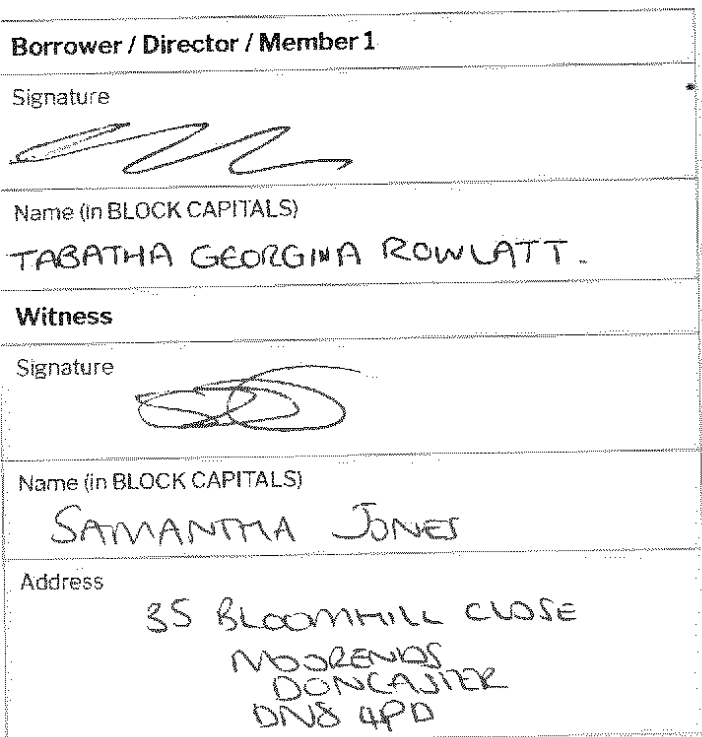 Borrower / Director / Member 1
Signature
Name (in BLOCK CAPITALS)
TABATHA GEORGINA ROWLATT.
Witness
Signature
Name (in BLOCK CAPITALS)
SAMANTHA JONES
Address
35 BLOOMHILL CLOSE
MOORENDS
DONCASTER
DN8 4PD